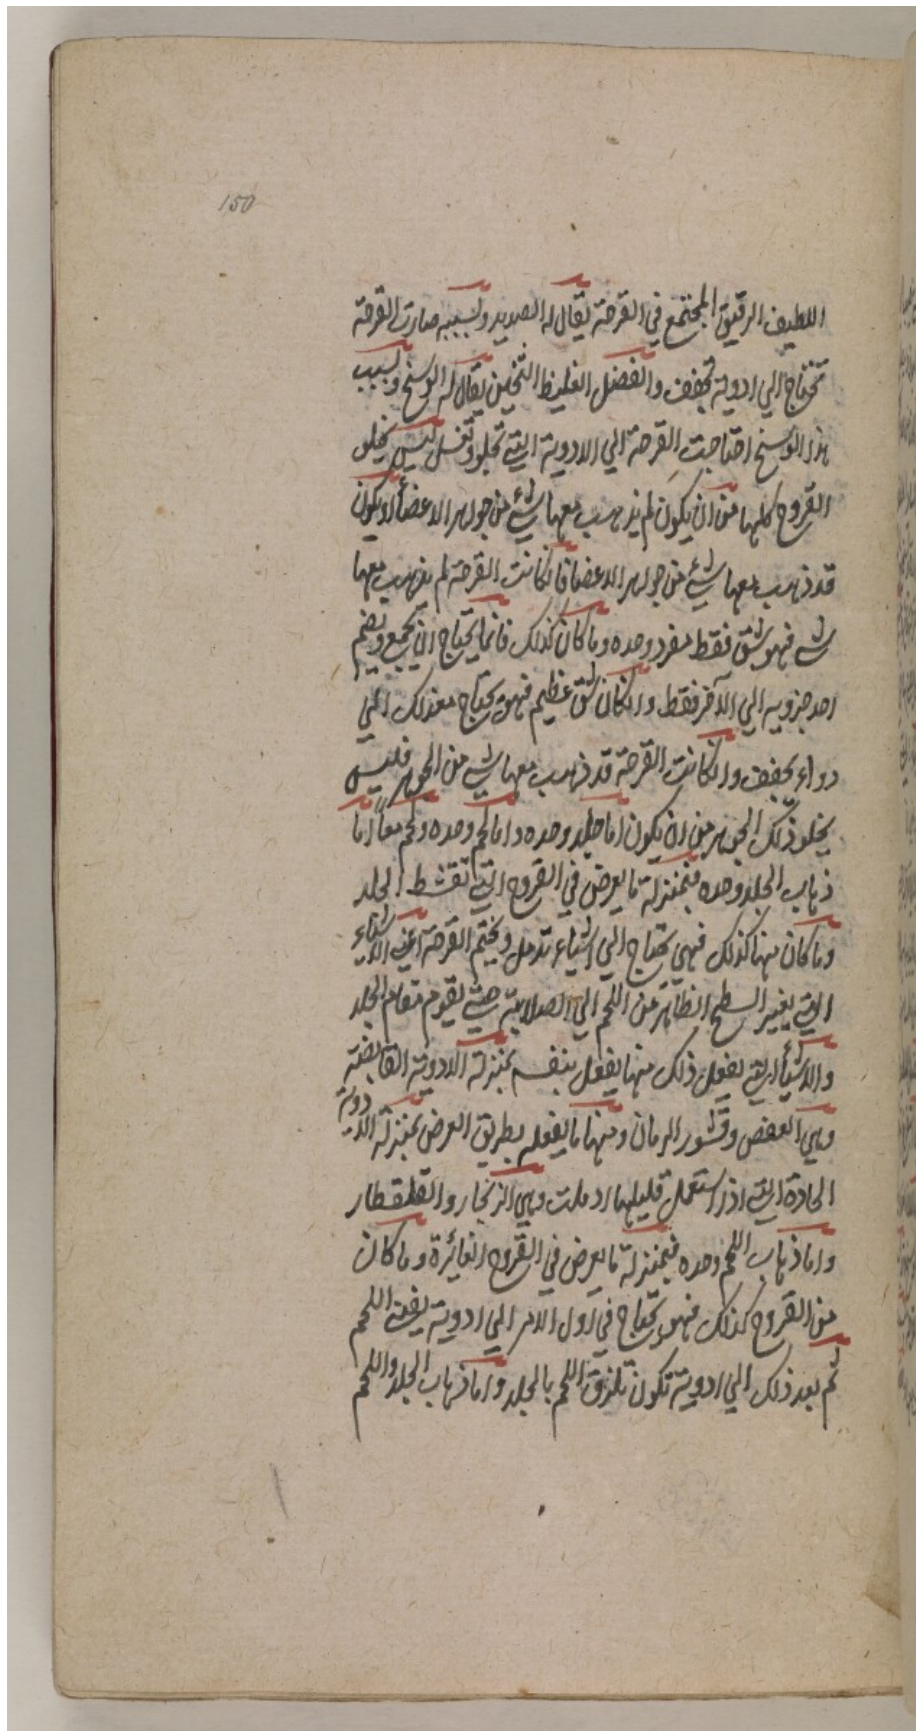 150
اللطيف الرقيق المجتمع في القرحة يقال له الصديد وبسببه صارت القرحة
تحتاج الي ادوية تجفف والفضل الغليظ الثخين يقال له الوسخ وبسبب
هذا الوسخ احتاجت القرحة الي الادوية التي تجلو وتغسل ليس يخلو
القروح كلها من ان يكون لم يذهب معها شئ من جوهر الاعضأ او يكون
قد ذهب معها شئ من جوهر الاعضا فانكانت القرحة لم يذهب معها
شي فهو شق فقط مفرد وحده وما كان كذلك فانما يحتاج ان يجمع ويضم
احد جزويه الي الآخر فقط وانكان شق عظيم فهو يحتاج معذلك الي
دواء يجفف وانكانت القرحة قد ذهب معها شي من الجوهر فليس
يخلو ذلك الجوهر من ان يكون اما جلد وحده واما لحم وحده ولحم معاً اما
ذهاب الجلد وحده فبمنزلة ما يعرض في القروح التي تقشط الجلد
وما كان منها كذلك فهي تحتاج الي اشياء تدمل ويختم القرحة اعني الاشياء
التي يغير السطح الظاهر من اللحم الي الصلابة حتي يقوم مقام الجلد
والاشيأ التي يفعل ذلك منها يفعل بنفسه بمنزلة الادوية القابضة
وهي العفص وقشور الرمان ومنها ما يفعله بطريق العرض بمنزلة الادوية
الحادة التي اذا استعمل قليلها ادملت وهي الزنجار والقلقطار
واما ذهاب اللحم وحده فبمنزلة ما يعرض في القروح الغائرة وما كان
من القروح كذلك فهو يحتاج في اول الامر الي ادوية ينبت اللحم
ثم بعد ذلك الي ادوية تكون تلزق اللحم بالجلد واما ذهاب الجلد واللحم